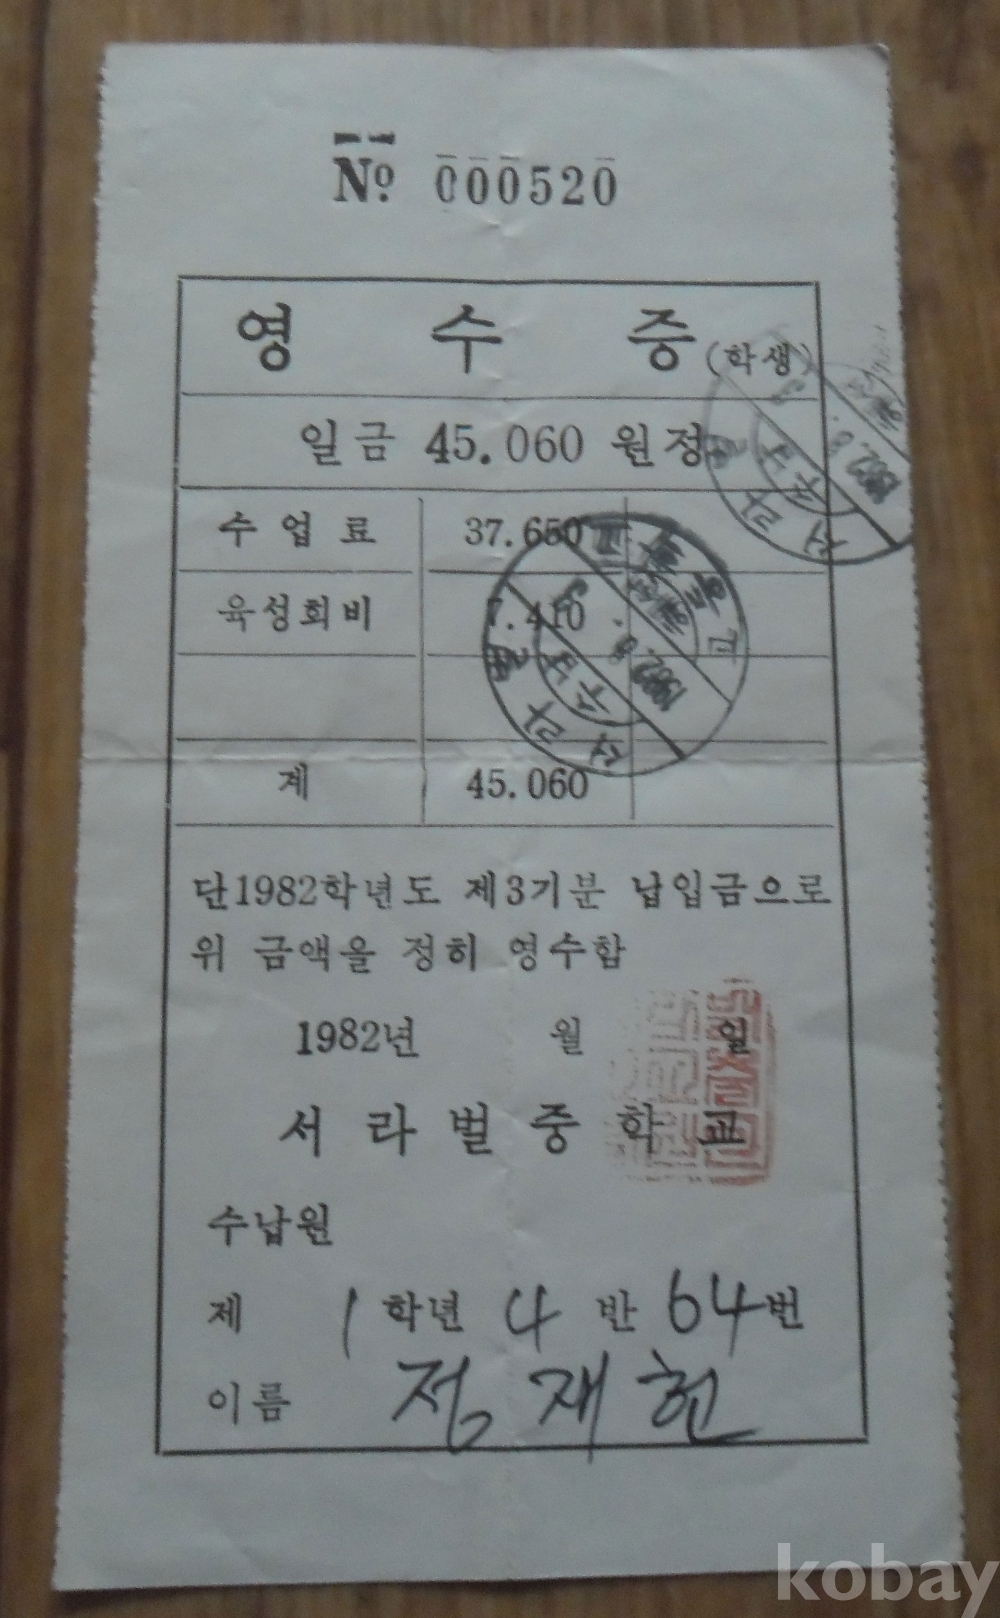 No. 000520
영 수 증 (학생)
일금 45.060 원정
수 업 료 37.650
육성회비 7.410
계 45.060
단1982학년도 제3기분 납입금으로
위 금액을 정히 영수함
1982년 월 일
서 라 벌 중 학 교
수납원
제 1 학년 4 반 64 번
이름 정재헌
kobay